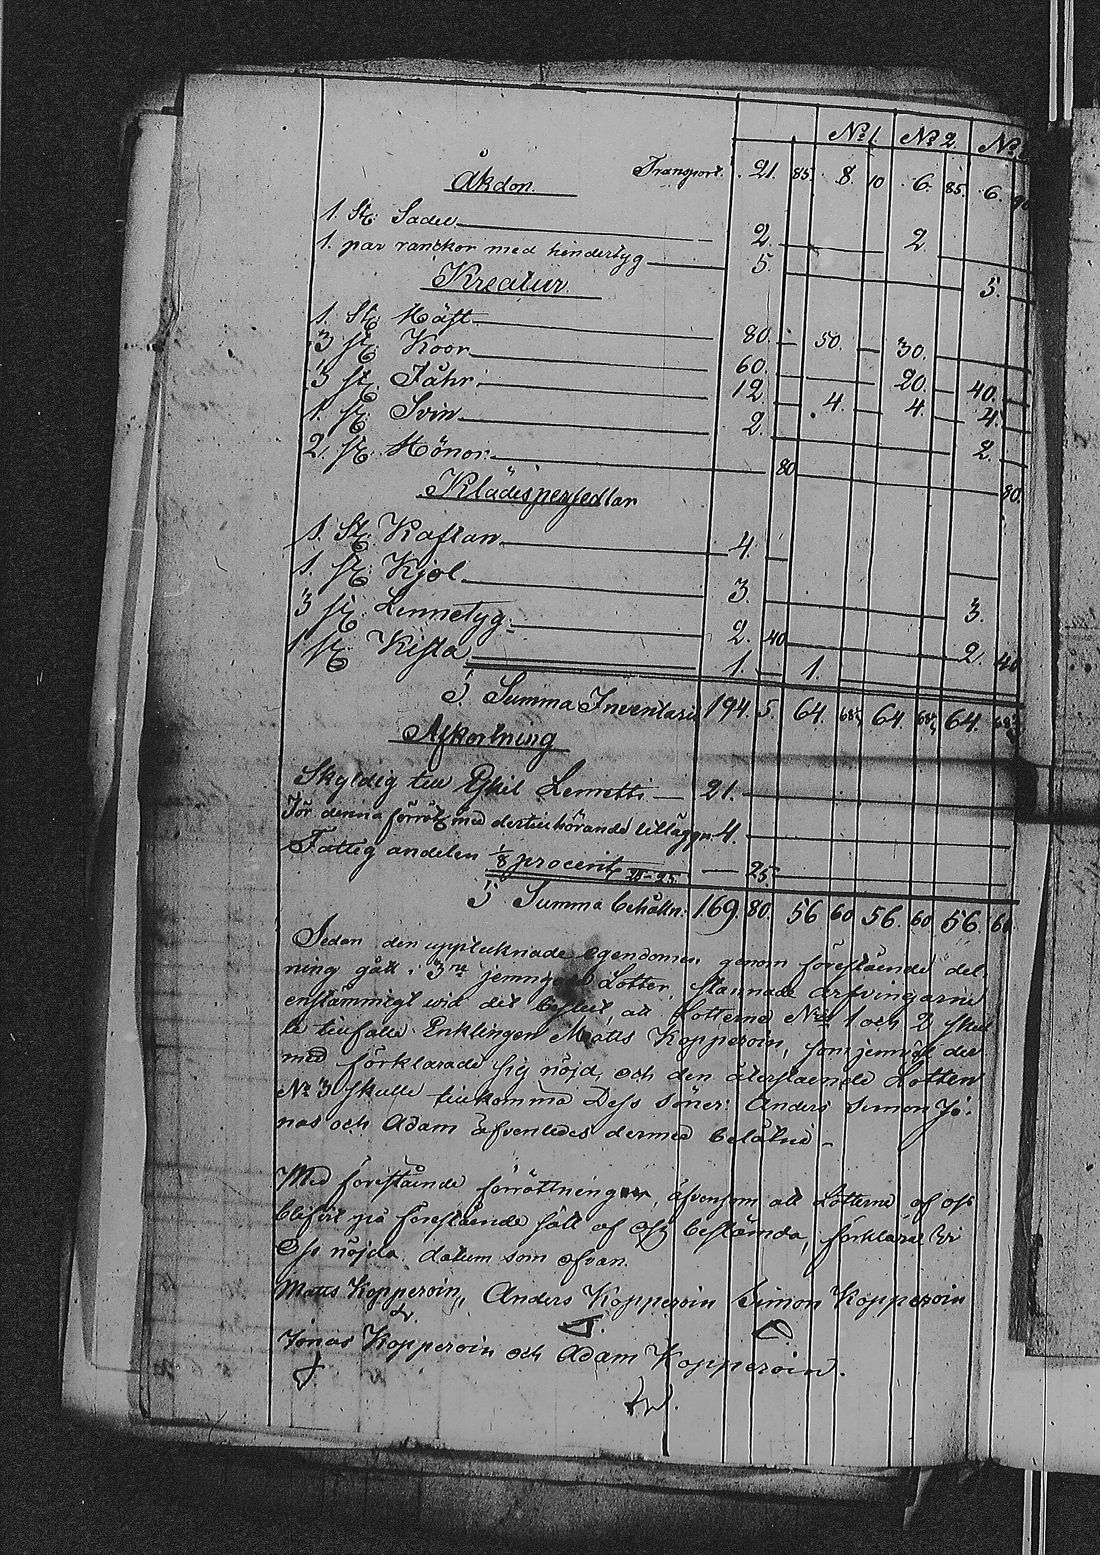 No 1 No 2 No
Transport. 21. 85. 8. 10 6. 85. 6. 90
Åkdon.
1. St: Sadel 2. 2
1. par ranckor med hindertyg 5. 5.
Kreatur
1. St: Häst 80. 50. 30.
3 st: Koor 60. 20. 40.
3 st: Fåhr 12 4. 4. 4.
1. st: Svin 2. 2.
2. st: Hönor 80 80.
Klädespersedlar
1. St: Kaftan 4.
1. st: Kjol 3. 3.
3 st: Linnetyg 2. 40 2. 40
1 st: Kista 1. 1.
S. Summa Inventarii 194. 5. 64. 68⅓ 64 68⅓ 64. 68⅓
Afkortning
Skyldig till Eskil Lemetti 21.
För denna förrätt: med dertillhörande tillägg 4.
Fattig andelen ⅛ procent 24-25 25.
S. Summa behålln: 169. 80. 56 60 56. 60 56 60
Sedan den uppteknade egendomen genom förestående del-
ning gått i 3ne jemna Lotter, stannade arfvingarne
enstämmigt wid det beslut att Lotterne No 1 och 2 skul
le tillfalla Enklingen Matts Kopperoin, som jemväl der
med förklarade sig nöjd, och den återstående Lotten
No 3 skulle tillkomma Dess söner: Anders Simon Jo-
nas och Adam äfvenledes dermed belåtne
Med förestående förrättning, äfvensom att Lotterne af oss
blifvit på förestående sätt af oss bestämda, förklare Vi
Oss nöjda. datum som ofvan.
Matts Kopperoin, Anders Kopperoin Simon Kopperoin
Jonas Kopperoin och Adam Kopperoin.